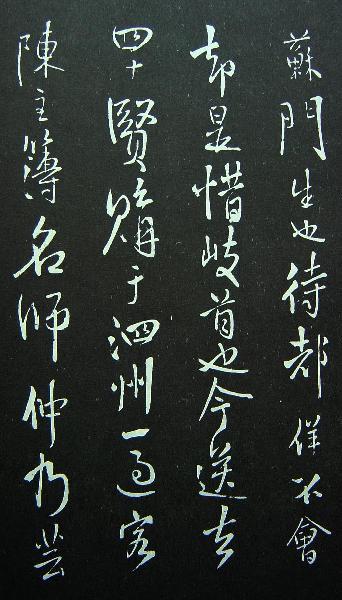 蘇門生也待都佯不會
却是惜岐首也今送去
四十賢購于泗州一過客
陳主簿名師仲乃芸